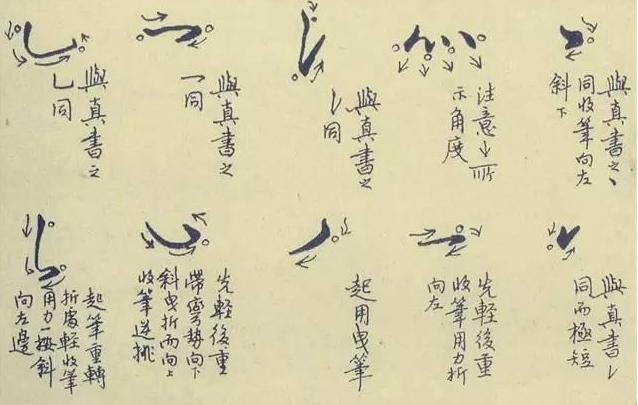 與真書之丶
同收筆向左
斜下
注意↓所
示角度
與真書之
丿同
與真書之
一同
與真書之
乚同
與真書丿
同而極短
先輕後重
收筆用力折
向左
起用曳筆
先輕後重
帶彎勢向下
斜曳折而向上
收筆送挑
起筆重轉
折處輕收筆
用力一按斜
向左邊